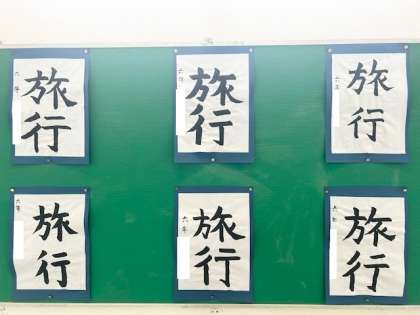 旅
行
六年
旅
行
六年
旅
行
六年
旅
行
六年
旅
行
六年
旅
行
六年